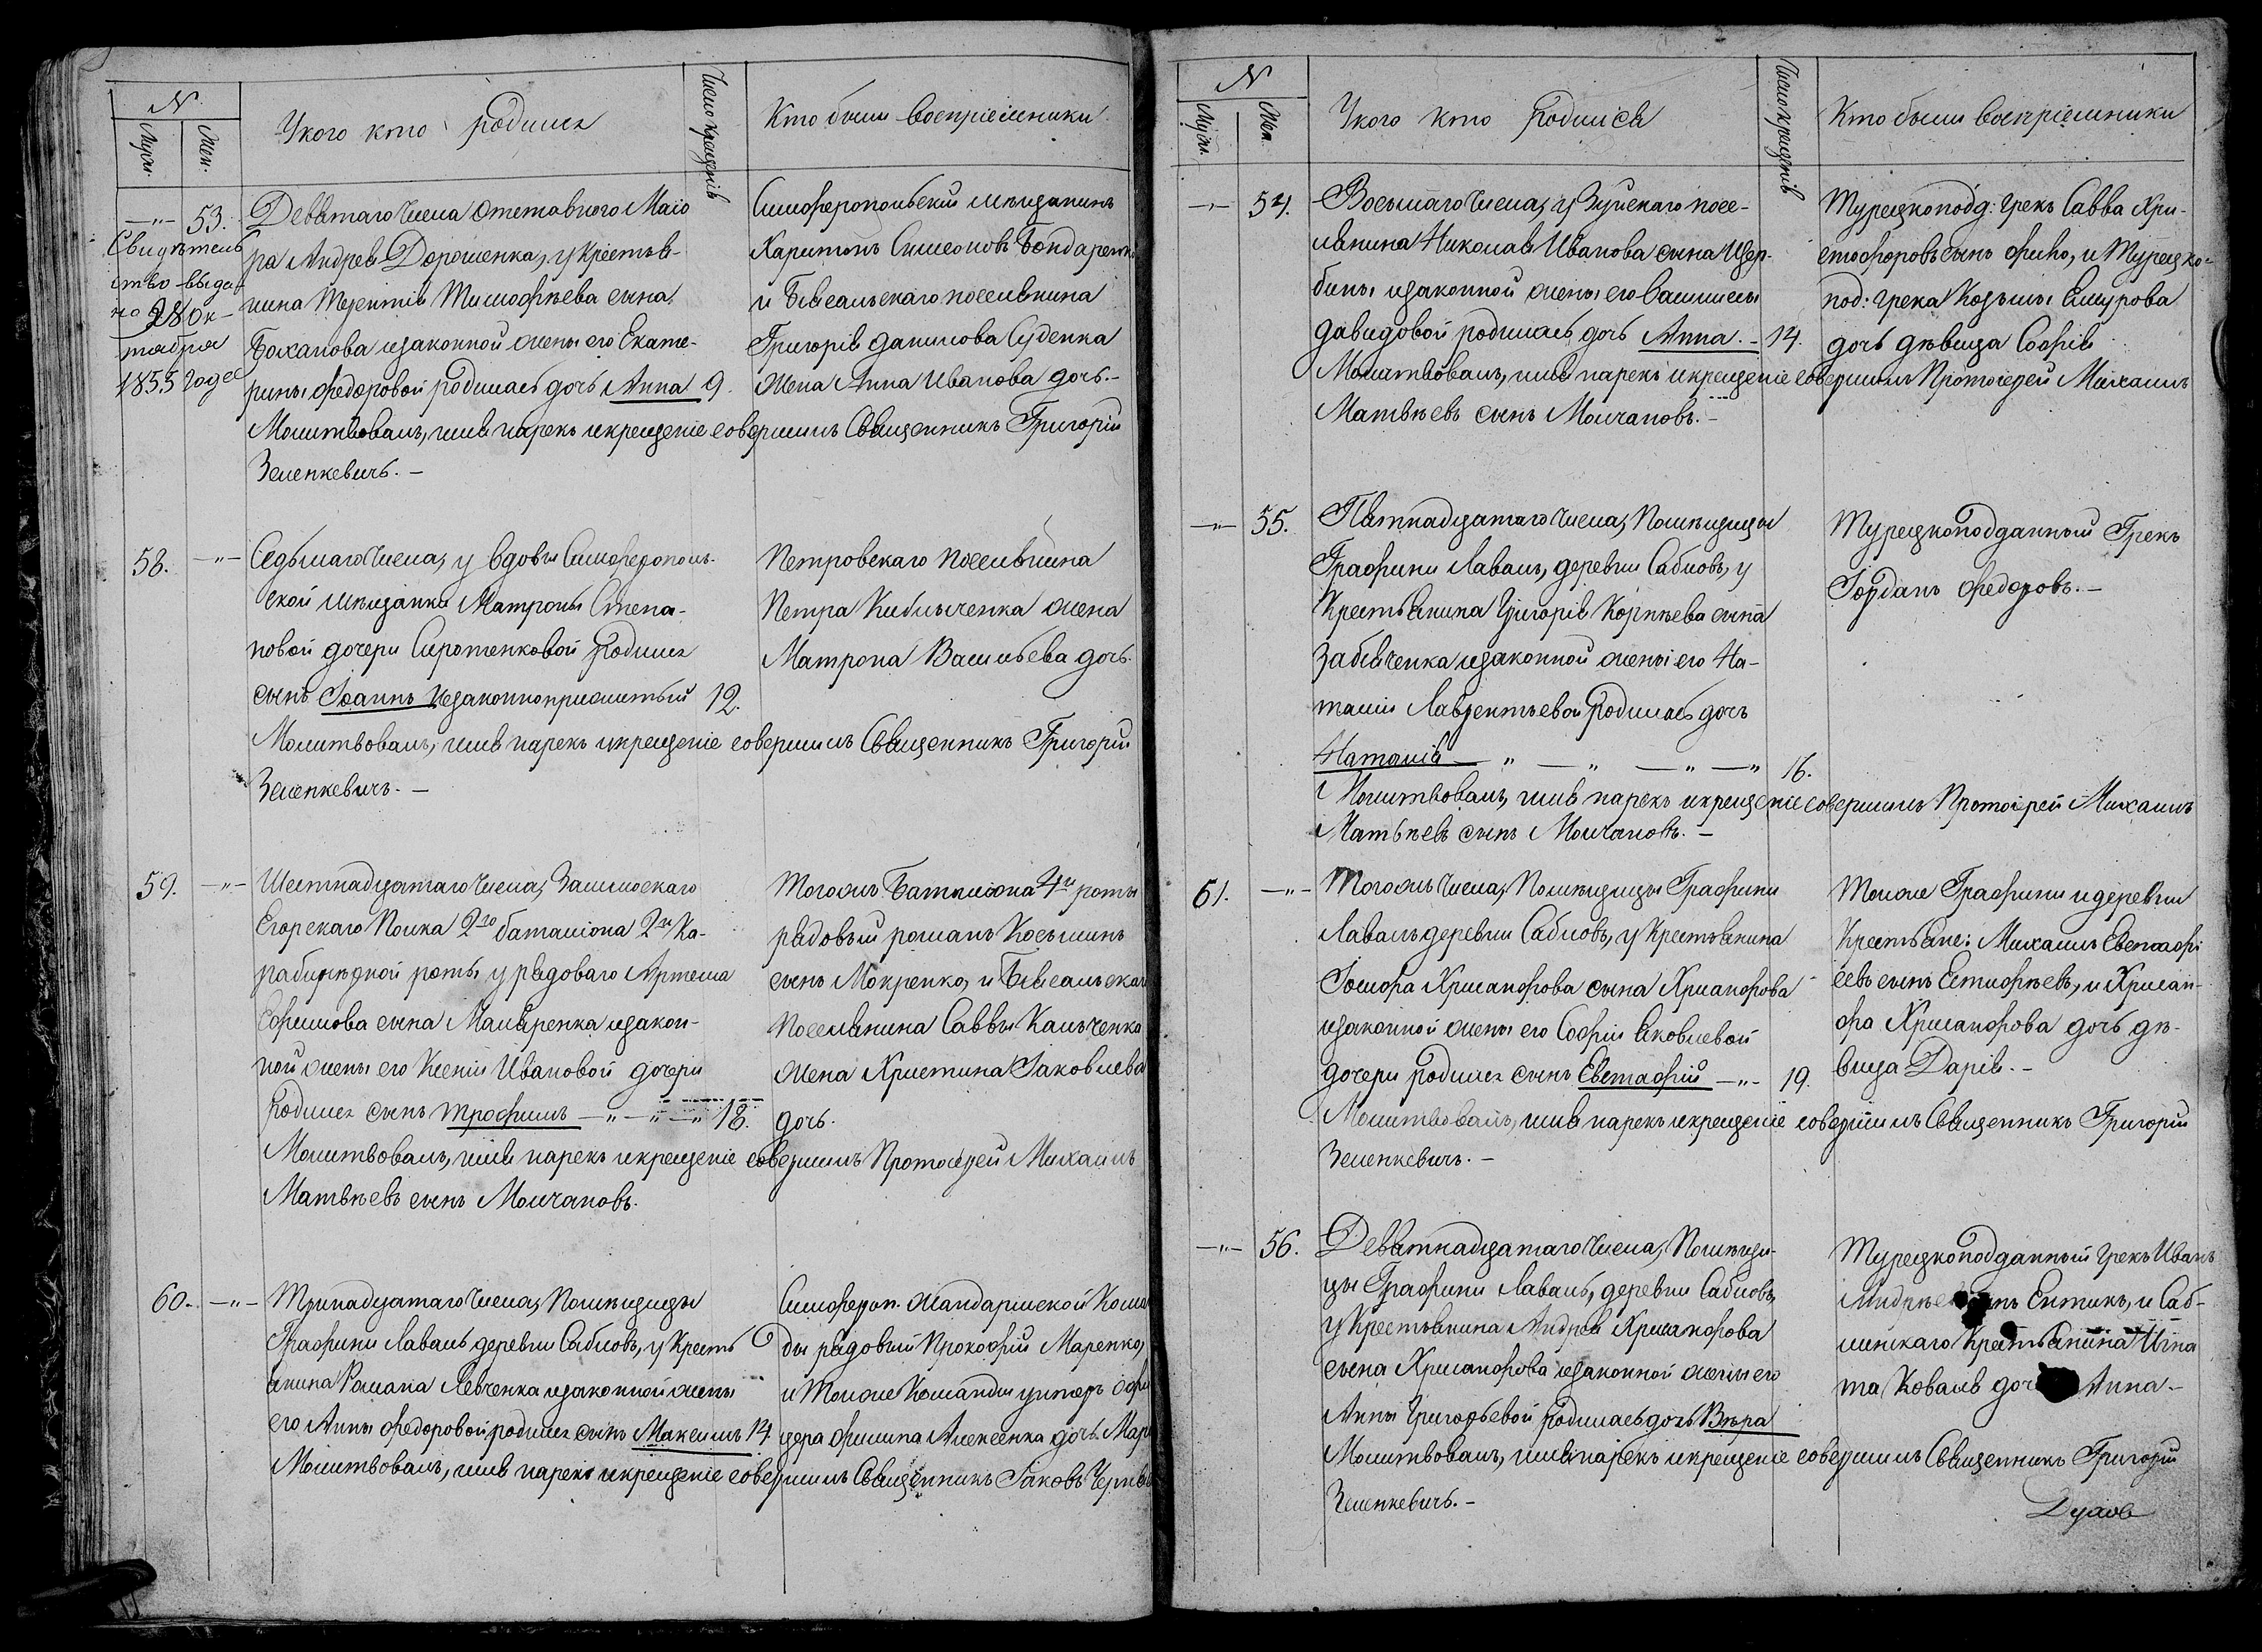 N
Муж.
Жен.
У кого кто родился
Число крещенія
Кто были воспріемники
—„— 53.
Свидѣтель
ство выда
но 28 Ок-
тября
1855 года
Девятаго числа отставного Маіо
ра Андрея Дорошенка, у крестья-
нина Терентія Тимофѣева сына
Боханова изаконной жены его Екате-
рины Федоровой родилась дочь Анна 9.
Молитвовалъ, имя нарекъ икрещеніе совершилъ Священникъ Григорій
Зеленкевичъ. —
Симферопольский мѣщанинъ
Харитонъ Симеоновъ Бондаренко
и Біясальскаго поселянина
Григорія Данилова Суденка
жена Анна Иванова дочь. —
58. —„—
Седьмаго числа, у вдовы Симферополь-
ской мѣщанки Матроны Степа-
новой дочери Сиротенковой родился
сынъ Іоаннъ незаконноприжитый 12.
Молитвовалъ, имя нарекъ икрещеніе совершилъ Священникъ Григорій
Зеленкевичъ. —
Петровскаго поселянина
Петра Кибальченка жена
Матрона Васильева дочь.
59. —„—
Шестнадцатаго числа, Замосцскаго
Егорскаго Полка 2го баталіона 2й Ка-
рабинѣрной роты у рядоваго Артема
Ефимова сына Маляренка изакон-
ной жены его Ксеніи Ивановой дочери
родился сынъ Трофимъ —„—„—„ 18.
Молитвовалъ, имя нарекъ икрещеніе совершилъ Протоіерей Михаилъ
Матвѣевъ сынъ Молчановъ.
Тогожъ Баталіона 4й роты
рядовый романъ Косьминъ
сынъ Мокренко, и Біясальскаго
поселянина Саввы Кальченка
жена Христина Іаковлева
дочь.
60. —„—
Тринадцатаго числа, Помѣщицы
Графини Лаваль деревни Сабловъ, у Кресть
янина Романа Левченка изаконной жены
его Анны Федоровой родился сынъ Максимъ 14
Молитвовалъ, имя нарекъ икрещеніе совершилъ Священникъ Іаковъ
Симфероп. Жандармской Кома
ды рядовый Прокофій Маренко,
и Тоиже Команды унтеръ офи
цера Филипа Алексенка дочь Мар
N
Муж.
Жен.
У кого кто родился
Число крещенія
Кто были воспріемники
—„— 54.
Восьмаго числа, у Зуйскаго посе-
лянина Николая Иванова сына Щер-
бины изаконной жены его Вассилисы
Давидовой родилась дочь Анна. — 14.
Молитвовалъ, имя нарекъ икрещеніе совершилъ Протоіерей Михаилъ
Матвѣевъ сынъ Молчановъ. —
Турецкоподд: грекъ Савва Хри-
стофоровъ сынъ Фико, и Турецко-
под: грека Козьмы Самурова
дочь дѣвица Софія
—„— 55.
Пятнадцатаго числа, Помѣщицы
Графини Лаваль, деревни Сабловъ, у
Крестьянина Григорія Корнѣева сына
Забіяченка изаконной жены его На-
таліи Лаврентьевой родилась дочь
Наталія — „ — „ — „ — „ 16.
Молитвовалъ, имя нарекъ икрещеніе совершилъ Протоіерей Михаилъ
Матвѣевъ сынъ Молчановъ. —
Турецкоподданный Грекъ
Іорданъ Федоровъ. —
61. —„—
Тогожъ числа, Помѣщицы Графини
Лаваль деревни Сабловъ, у Крестьянина
Ісидора Хрисанфова сына Хрисанфова
изаконной жены его Софіи Яковлевой
дочери родился сынъ Евстафій —„— 19.
Молитвовалъ, имя нарекъ икрещеніе совершилъ Священникъ Григорій
Зеленкевичъ. —
Тоиже Графини и деревни
Крестьяне: Михаилъ Евстафі
евъ сынъ Естифѣевъ, и Хрисан-
фа Хрисанфова дочь дѣ-
вица Дарія. —
—„— 56.
Девятнадцатаго числа, Помѣщи-
цы Графини Лаваль, деревни Сабловъ,
у Крестьянина Андрея Хрисанфова
сына Хрисанфова изаконной жены его
Анны Григорьевой родилась дочь Вѣра
Молитвовалъ, имя нарекъ икрещеніе совершилъ Священникъ Григорій
Зеленкевичъ. —
Турецкоподданный грекъ Иванъ
Ентикъ, и Саб-
линскаго Крестьянина Игна
та Коваля Анна —
Духов